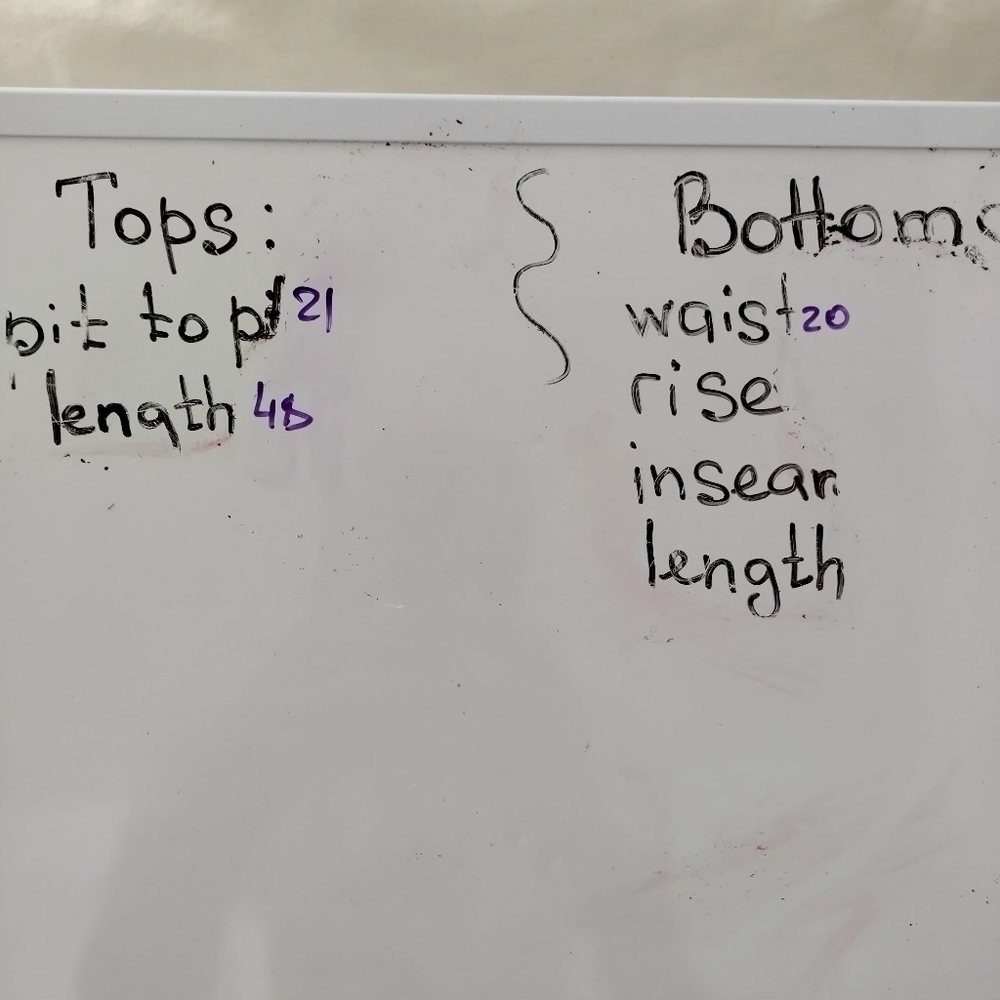 Tops:
pit to pit 21
length 48
Bottoms
waist 20
rise
inseam
length